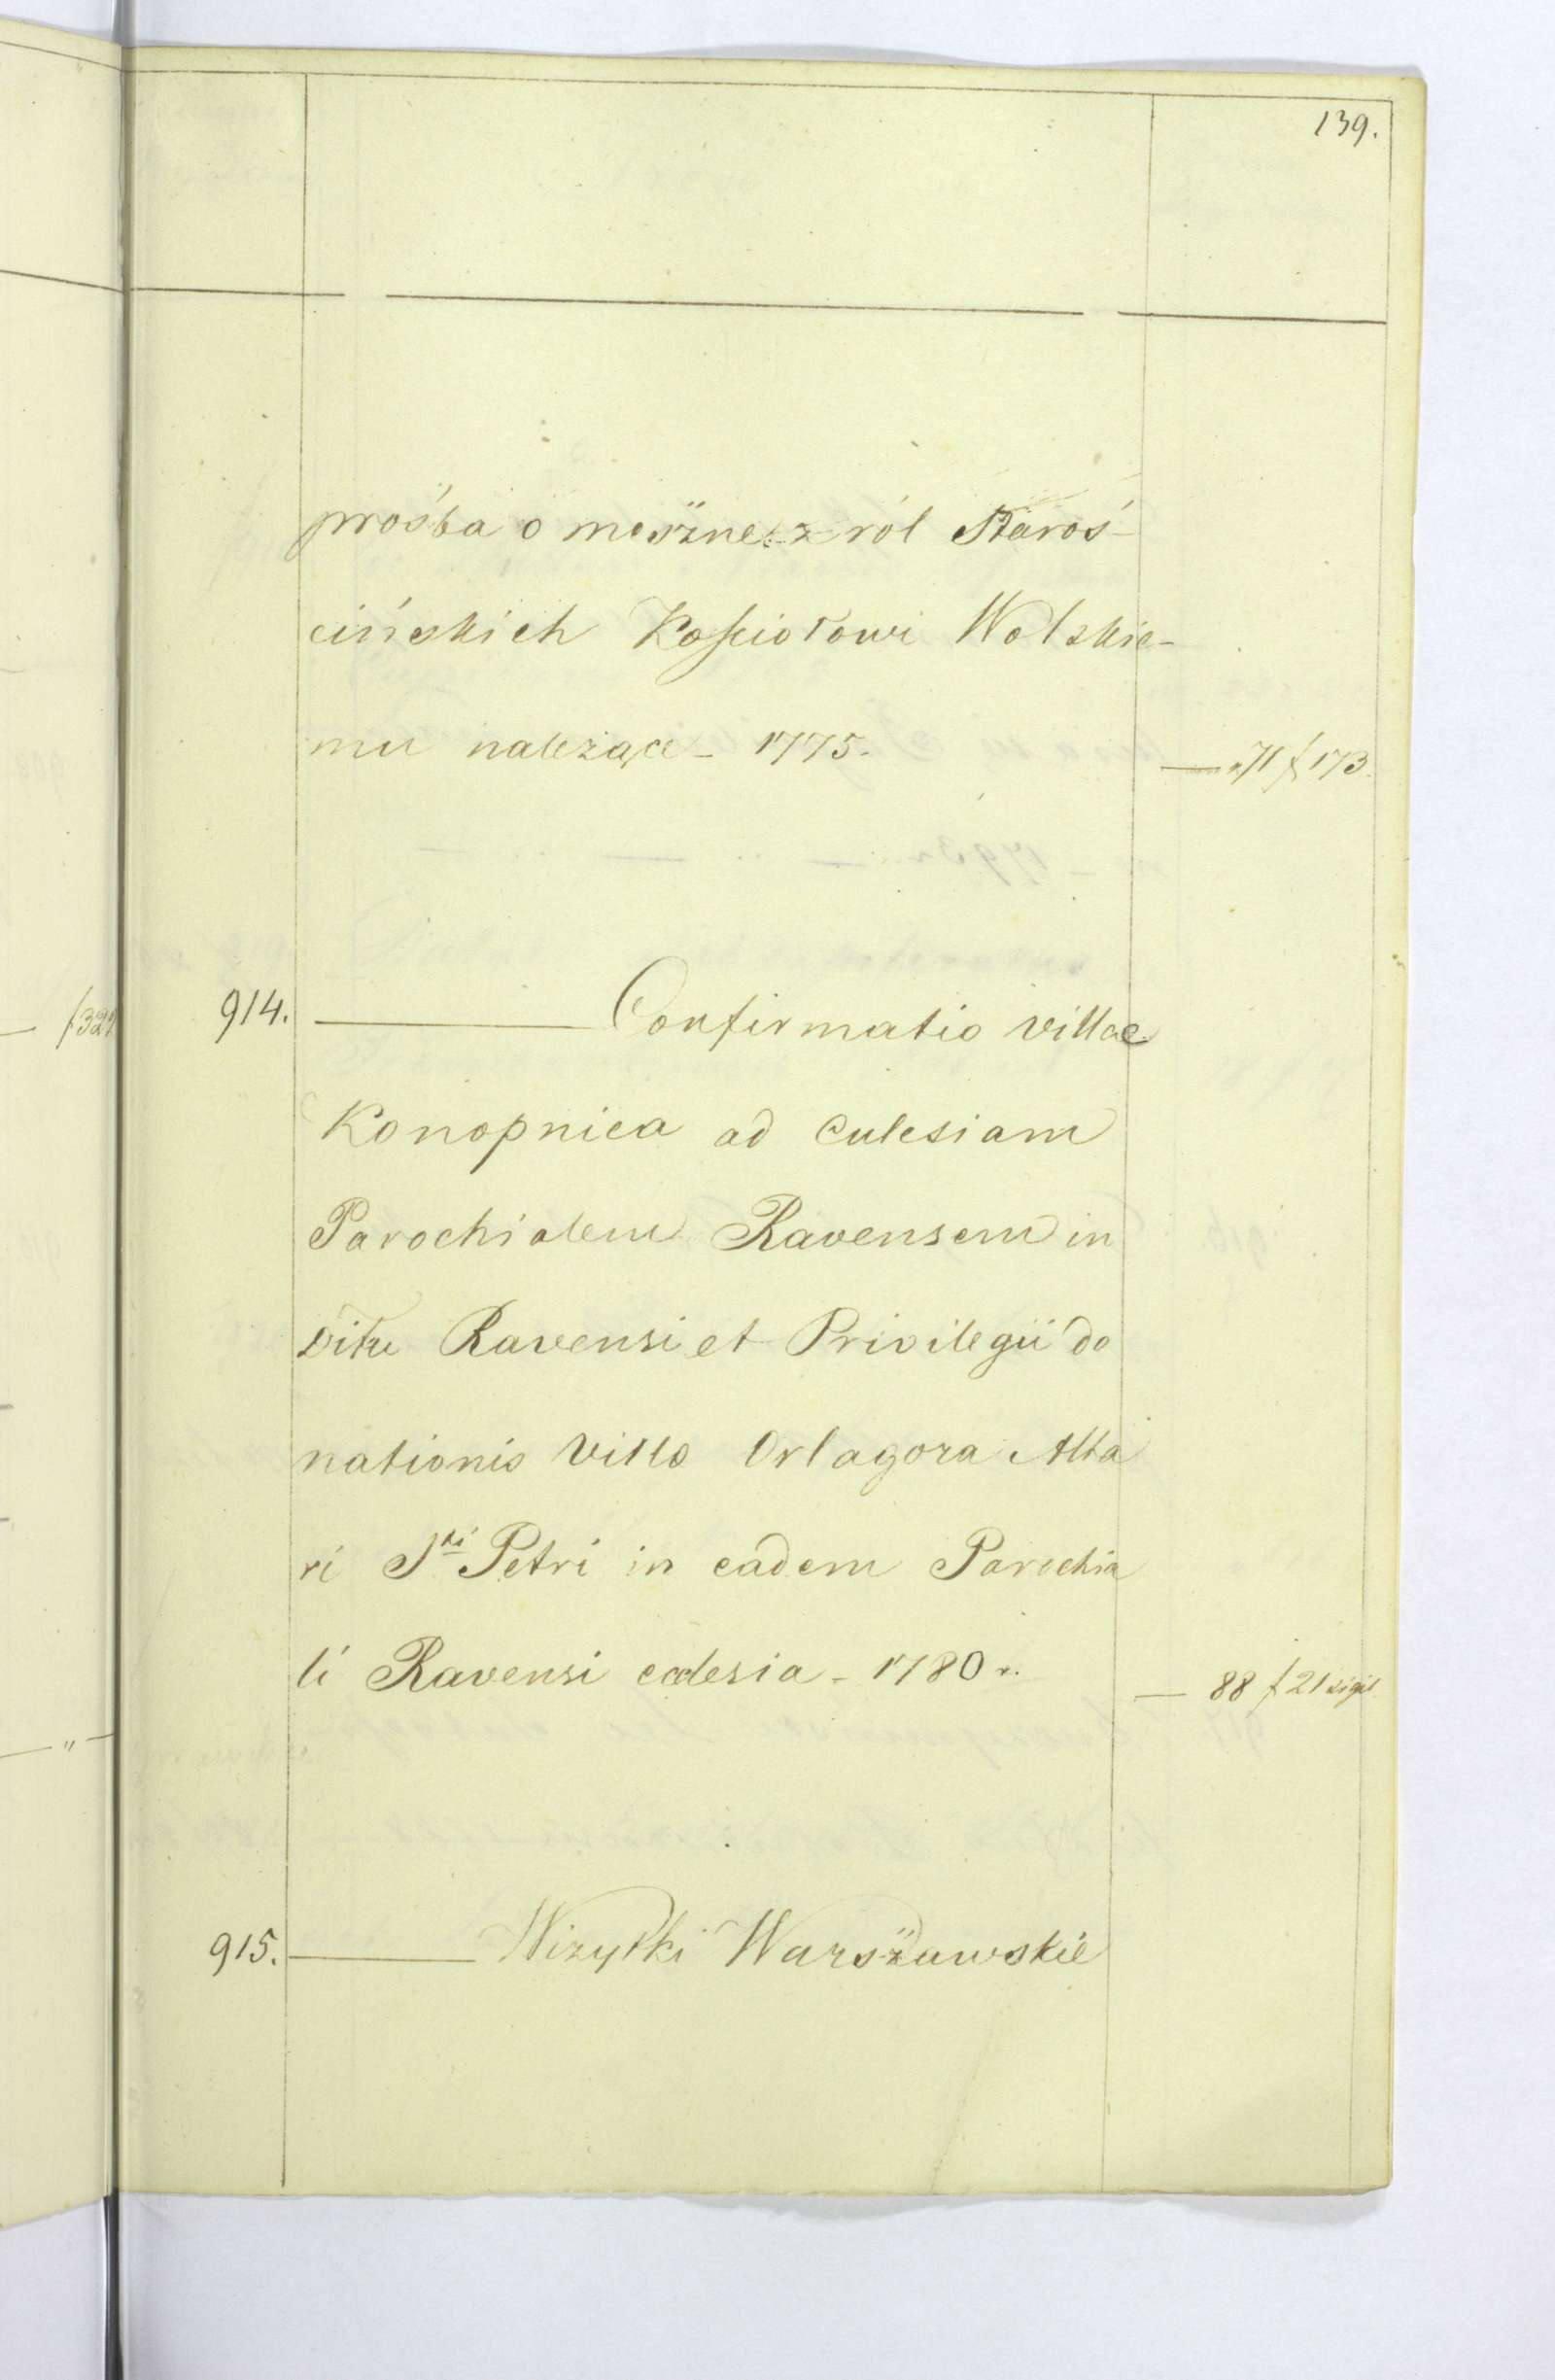 139.
prośba o meszne z ról Staroś-
cińskich Kościołowi Wolskie-
mu należące - 1775. — 71 f 173.
914. — Confirmatio villae
Konopnica ad Eclesiam
Parochialem Ravensem in
situ Ravensi et Privilegii do
nationis Villa Orlagora Alta
ri Sti Petri in eadem Parochia
li Ravensi ecclesia - 1780 r. — 88 f 21 sigil
915. — Wizytki Warszawskie